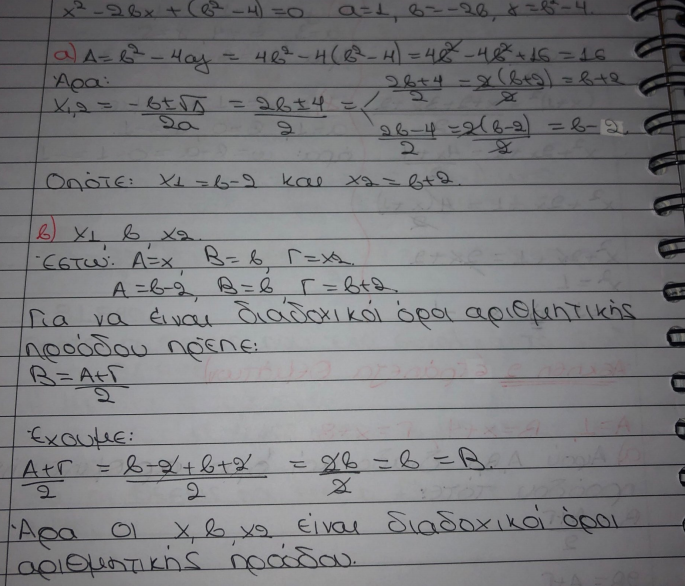 x² - 2βx + (β² - 4) = 0   α = 1, β = -2β, γ = β² - 4.
α) Δ = β² - 4αγ = 4β² - 4(β² - 4) = 4β² - 4β² + 16 = 16
Άρα:
x1,2 = (-β ± √Δ)/2α = (2β ± 4)/2 = < (2β + 4)/2 = 2(β + 2)/2 = β + 2
(2β - 4)/2 = 2(β - 2)/2 = β - 2
Οπότε: x1 = β - 2 και x2 = β + 2.
β) x1, β, x2.
Έστω: A = x, B = β, Γ = x2
A = β - 2, B = β, Γ = β + 2
Για να είναι διάδοχικόι όροι αριθμητικής
προόδου πρέπε:
B = (A + Γ)/2
Έχουμε:
(A + Γ)/2 = (β - 2 + β + 2)/2 = 2β/2 = β = B.
Άρα οι x, β, x2 είναι διαδοχικόι όροι
αριθμητικής προόδου.